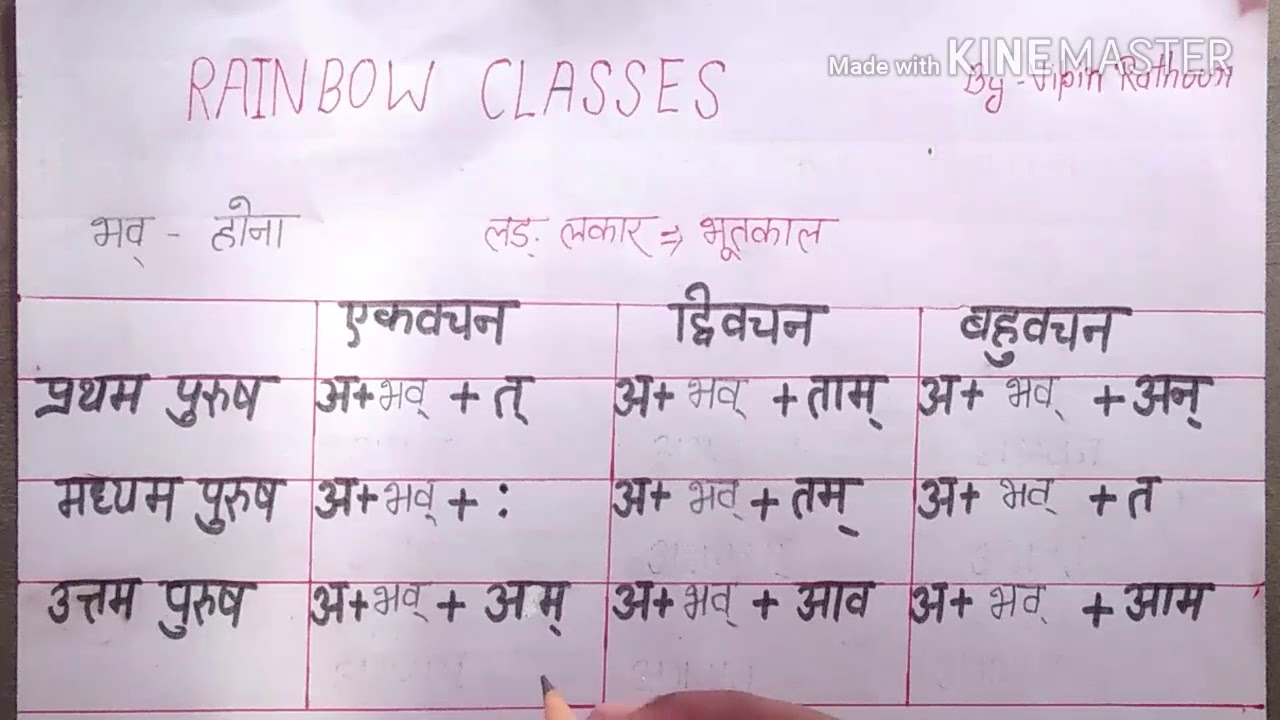 RAINBOW CLASSES
Made with KINEMASTER
By - Vipin Rathour
भव् - होना
लङ् लकार ⇒ भूतकाल
एकवचन द्विवचन बहुवचन
प्रथम पुरुष अ+भव् + त् अ+ भव् + ताम् अ+ भव् + अन्
मध्यम पुरुष अ+भव् + : अ+ भव् + तम् अ+ भव् + त
उत्तम पुरुष अ+भव् + अम् अ+भव् + आव अ+ भव् + आम